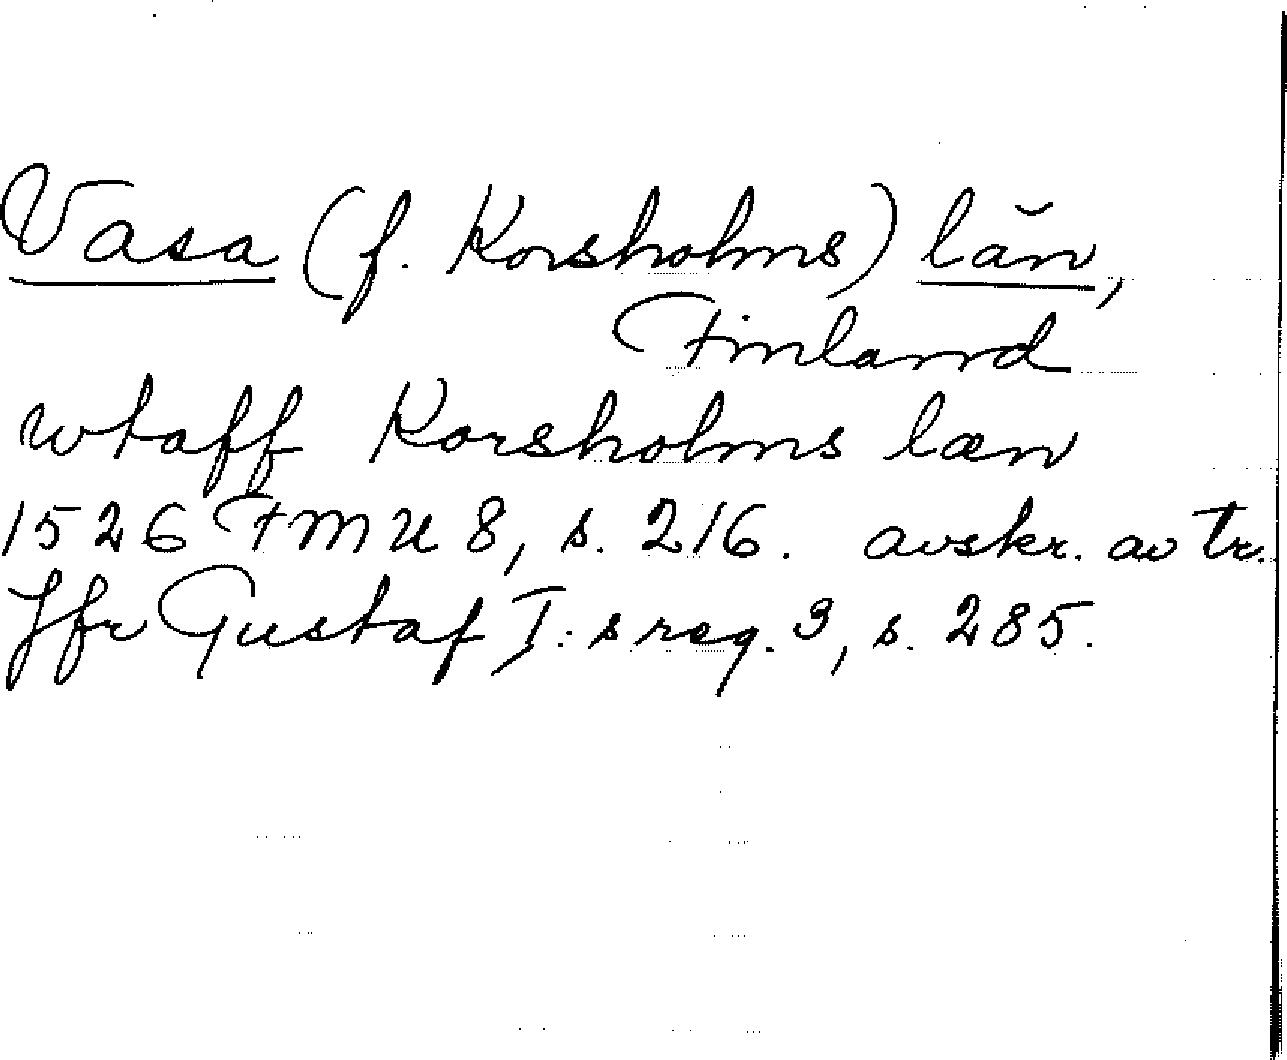 Vasa (f. Korsholms) län,
Finland
wtaff Korsholms læn
1526 FMU 8, s. 216. avskr. av tr.
Jfr Gustaf I:s reg. 3, s. 285.